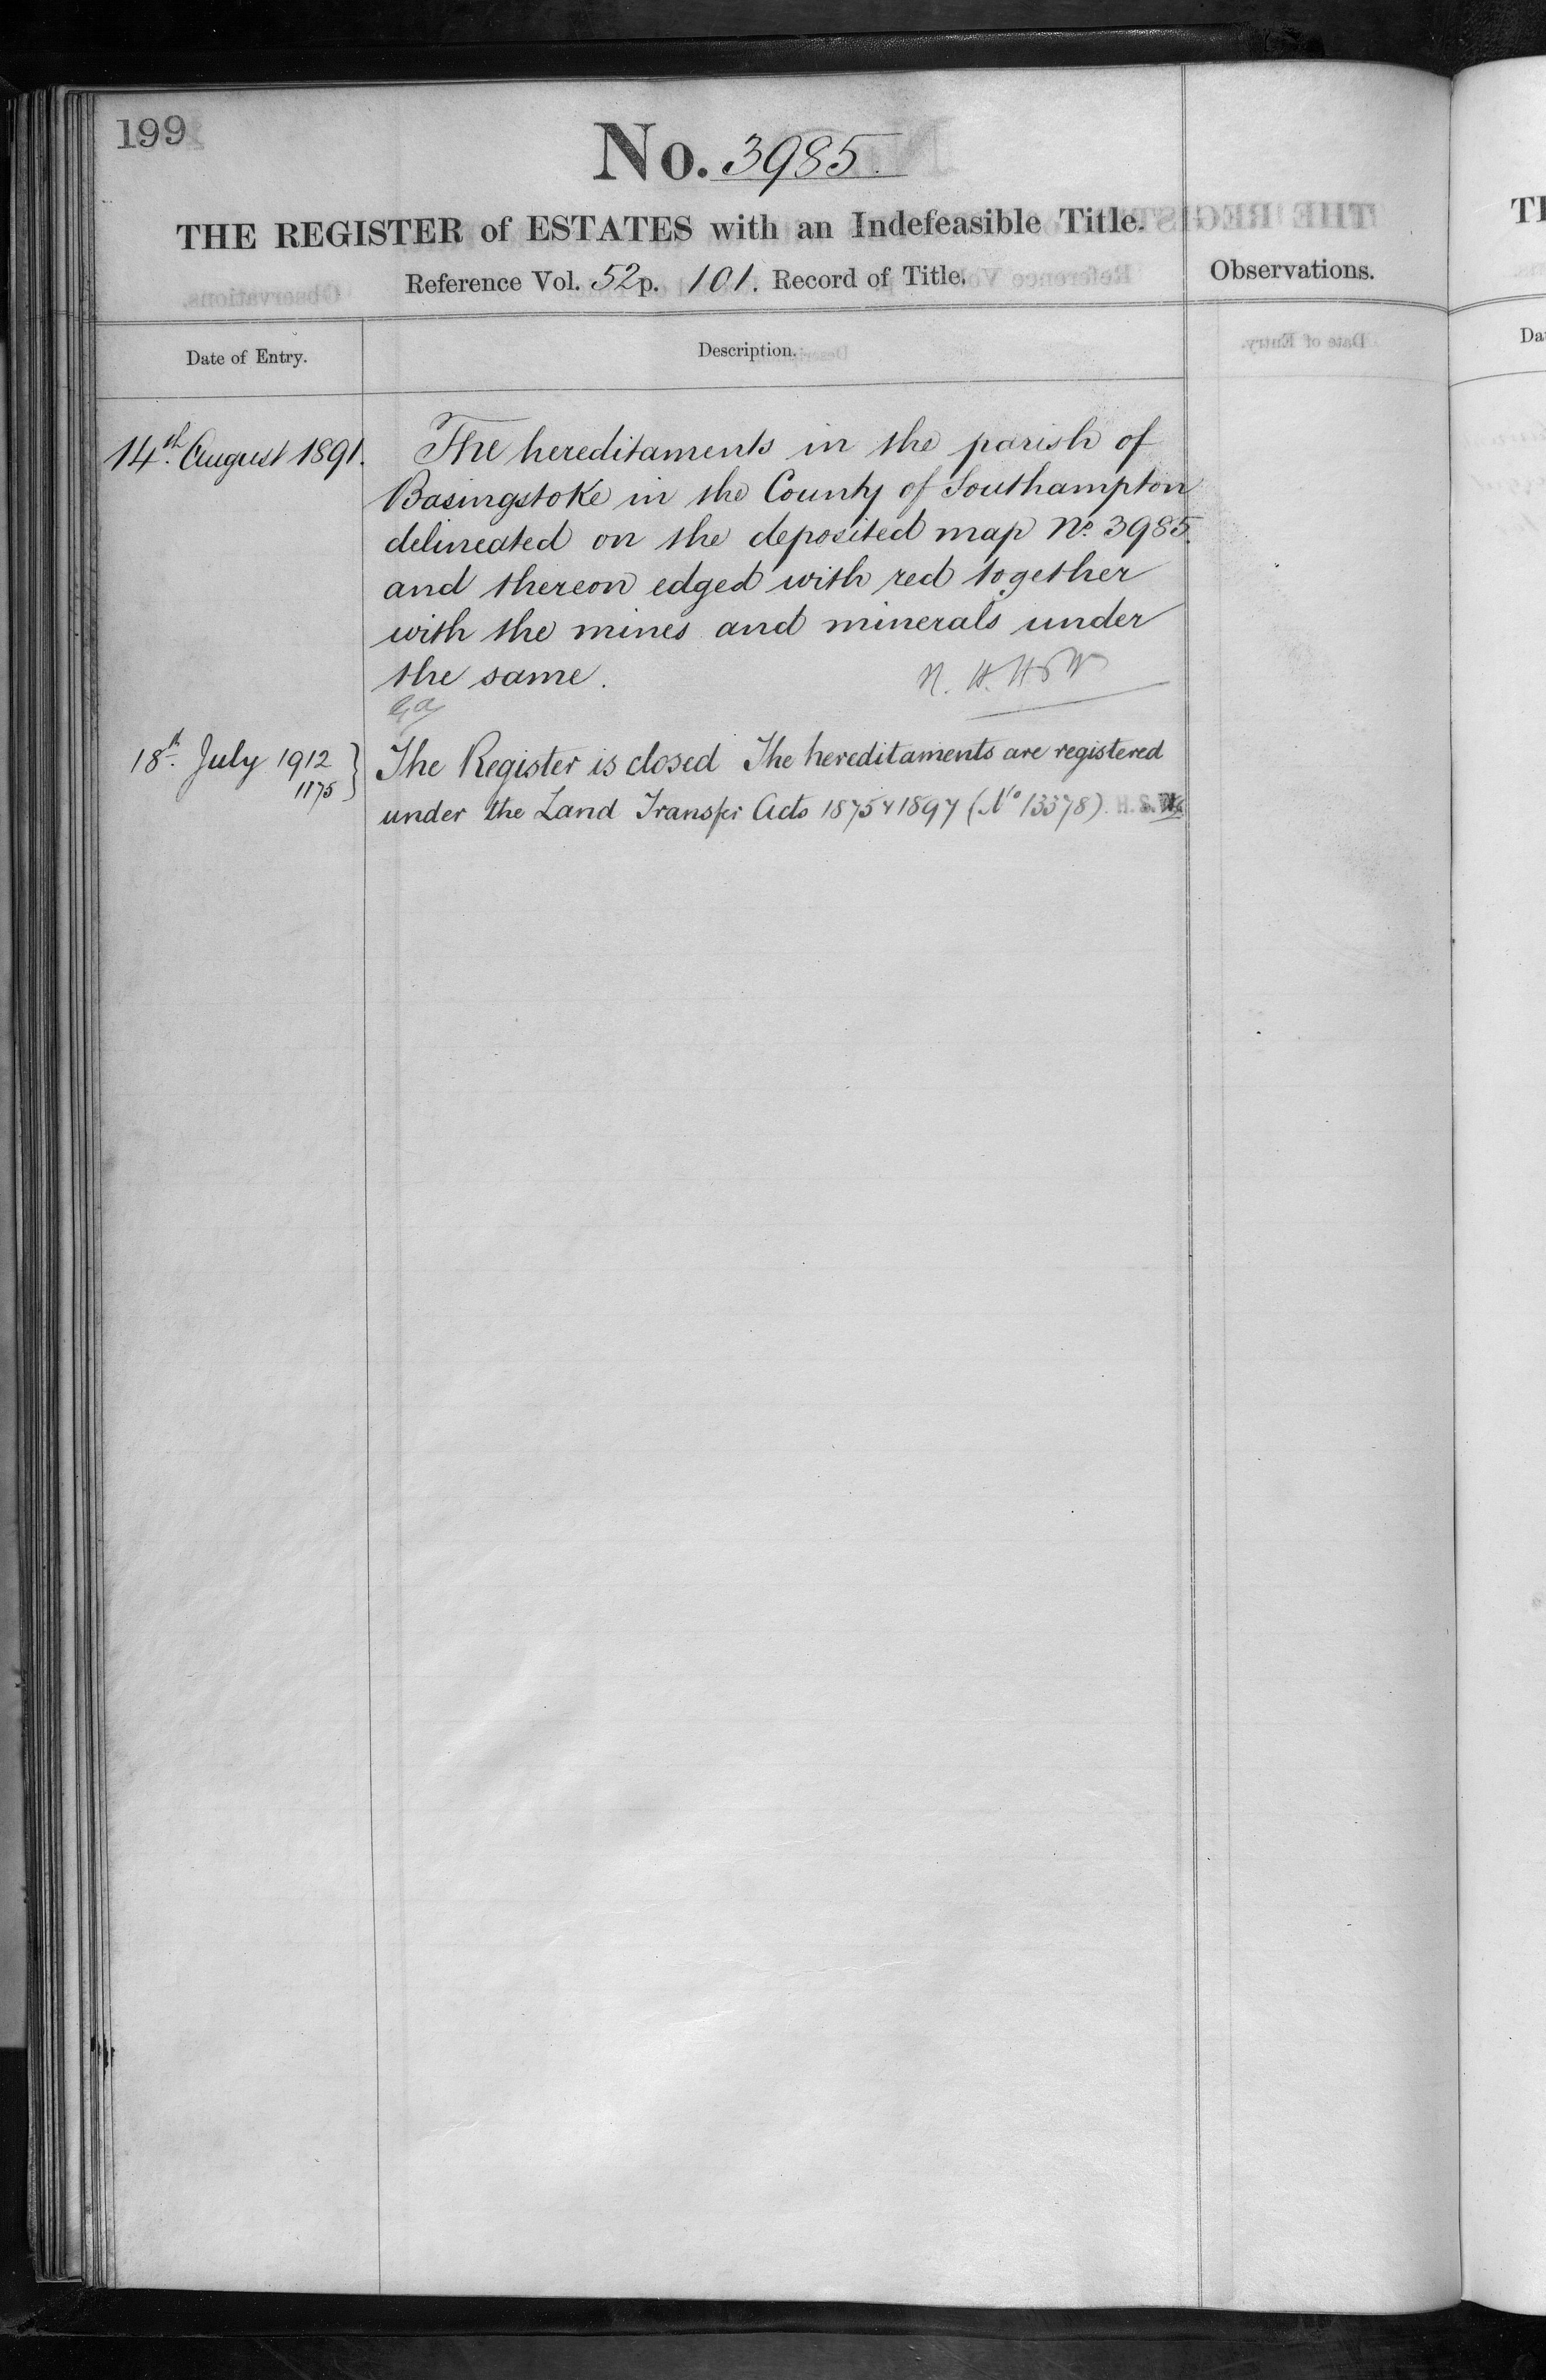 199
No. 3985.
THE REGISTER of ESTATES with an Indefeasible Title.
Reference Vol. 52 p. 101. Record of Title.
Observations.
Date of Entry.
Description.
14th. August 1891.
The hereditaments in the parish of
Basingstoke in the County of Southampton
delineated on the deposited map No. 3985.
and thereon edged with red together
with the mines and minerals under
the same.
18th. July 1912
1175
The Register is closed The hereditaments are registered
under the Land Transfer Acts 1875 & 1897 (No 13378).